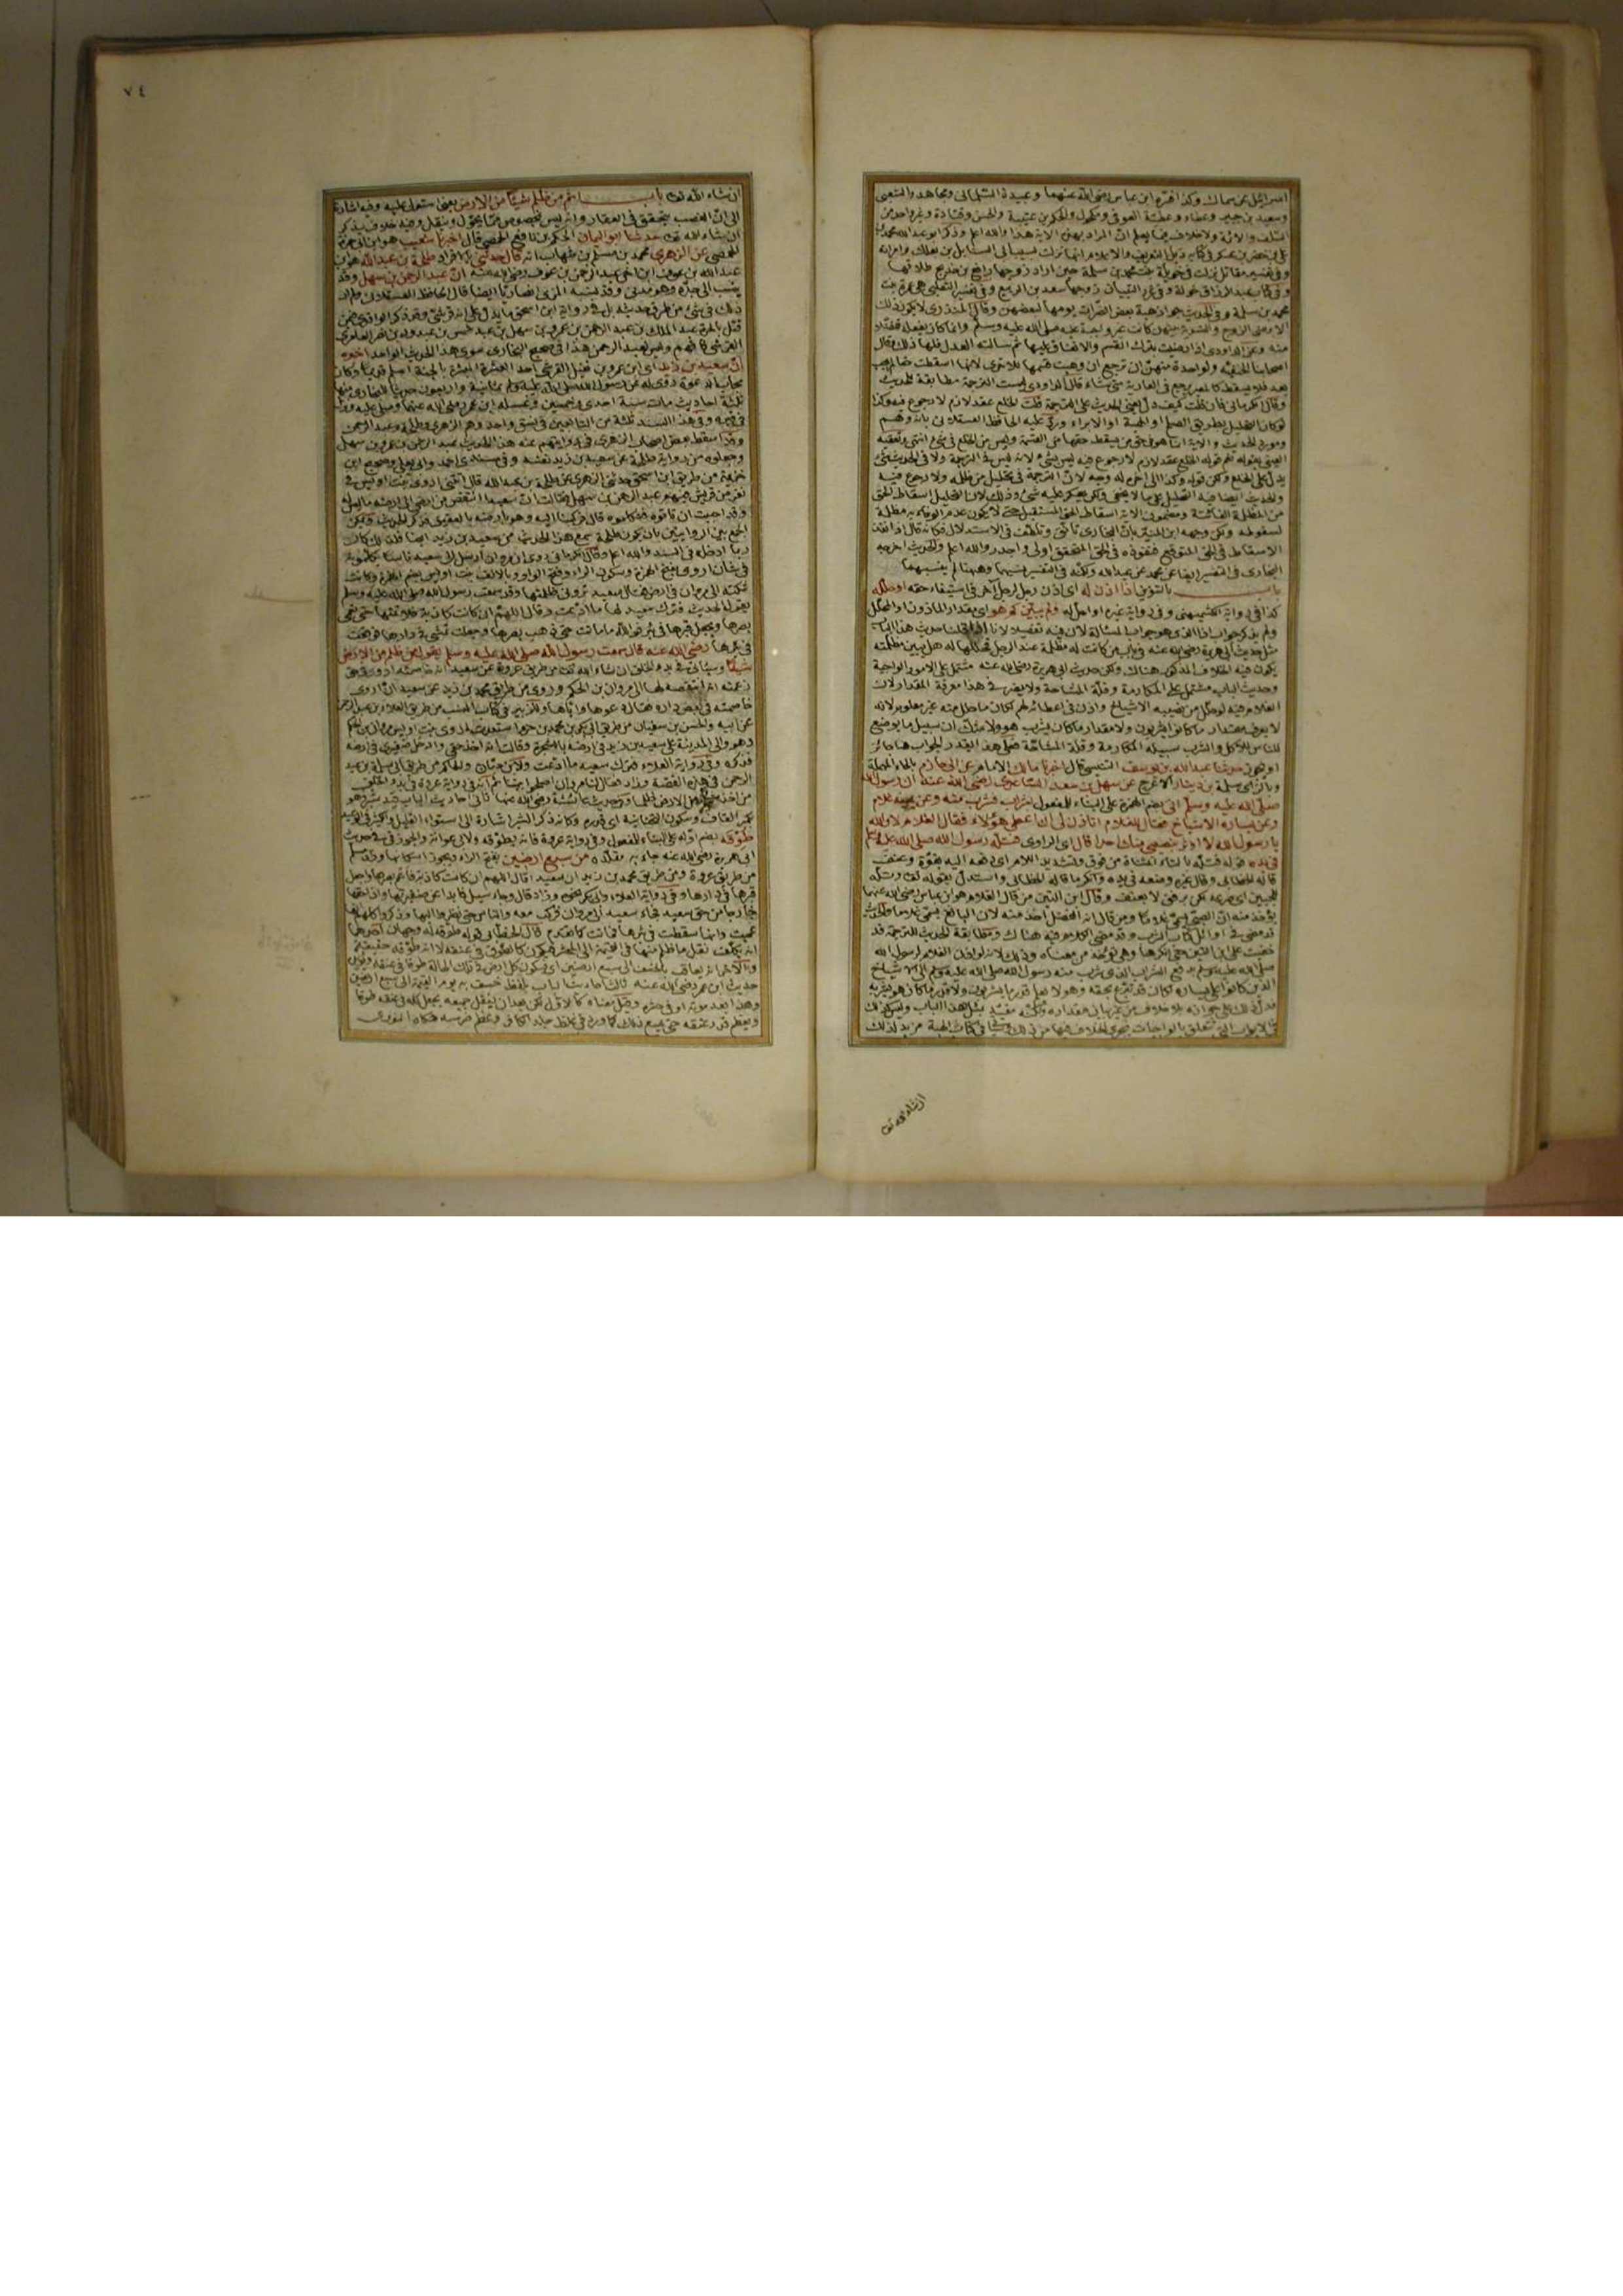 اسرائيل عن سماك وكذا فسره ابن عباس رضى الله عنهما وعبيدة السلمانى ومجاهد والشعبى
وسعيد بن جبير وعطاء وعطية العوفى ومكحول والحكم بن عتيبة والحسن وقتادة وغير واحد من
السلف والائمة ولا خلاف فيما يعلم ان المراد بهذه الاية هذا والله اعلم وذكر ابو عبد الله محمد بن
على بن خضر بن عسكر فى كتابه ذيل التعريف والاعلام انها نزلت بسبب ابى السنابل بن بعكك وامراته
وفى تفسير مقاتل نزلت فى خويلة بنت محمد بن مسلمة حين اراد زوجها رافع بن خديج طلاقها
وفى كتاب عبد الرزاق خولة وفى غرر التبيان زوجها سعد بن الربيع وفى تفسير الثعلبى هى عمرة بنت
محمد بن مسلمة وفى الحديث جواز هبة بعض الضرات يومها لبعضهن وقال المنذرى لا يكون ذلك
الا برضى الزوج والتسوية بينهن كانت غير واجبة عليه صلى الله عليه وسلم وانما كان يفعله تفضلا
منه وعن الداودى اذا رضيت بترك القسم والانفاق عليها ثم سالته العدل فلها ذلك وقال
اصحابنا الحنفية ولواحدة منهن ان ترجع ان وهبت قسمها للاخرى لانها اسقطت حقا لم يجب
بعد فلا يسقط كالمعير يرجع فى العارية متى شاء قال الداودى ليست الترجمة مطابقة للحديث
وقال الكرمانى فان قلت كيف دل يعنى الحديث على الترجمة قلت الخلع عقد لازم لا رجوع فيه وكذا
لو كان التحليل بطريق الصلح او الهبة او الابراء ورد عليه الحافظ العسقلانى بانه وهم
ومورد الحديث والاية انما هو فى حق من يسقط حقها من القسمة وليس من الخلع فى شئ انتهى وتعقبه
العينى بقوله نعم قوله الخلع عقد لازم لا رجوع فيه ليس بشئ لانه ليس فى الترجمة ولا فى الحديث شئ
يدل على الخلع ولكن قوله وكذا الى اخره له وجه لان الترجمة فى تحليل من ظلمه ولا رجوع فيه
والحديث ايضا فيه التحليل على ما لا يخفى ولكن يعكر عليه شئ وذلك لان التحليل اسقاط الحق
من المظلمة الفائتة ومضمون الاية اسقاط الحق المستقبل حتى لا يكون عدم الوفاء به مظلمة
لسقوطه ولكن وجهه ابن المنير بان البخارى تانى وتلطف فى الاستدلال فكانه قال اذا نفذ
الاسقاط فى الحق المتوقع فنفوذه فى الحق المتحقق اولى واجدر والله اعلم والحديث اخرجه
البخارى فى التفسير ايضا عن محمد عن عبد الله ولكنه فى التفسير نسبهما وههنا لم ينسبهما
باب بالتنوين اذا اذن له اى اذن رجل لرجل آخر فى استيفاء حقه او حلله
كذا فى رواية الكشميهنى وفى رواية غيره او احل له ولم يبين كم هو اى مقدار الماذون او المحلل
ولم يذكر جواب اذا الذى هو جواب المسالة لان فيه تفصيلا لانا قلنا حديث هذا الباب
مثل حديث ابى هريرة رضى الله عنه فى باب من كانت له مظلمة عند الرجل فحللها له هل يبين مظلمته
يكون فيه الخلاف المذكور هناك ولكن حديث ابى هريرة رضى الله عنه مشتمل على الامور الواجبة
وحديث الباب مشتمل على المكارمة وقلة المشاحة ولا يضر فى هذا معرفة المقدار لان
الغلام فيه لو حلل من نصيبه الاشياخ واذن فى اعطائه لهم لكان ما حلل منه غير معلوم لانه
لا يعرف مقدار ما كانوا يشربون ولا مقدار ما كان يشرب هو ولا شك ان سبيل ما يوضع
للناس للاكل والشرب سبيله المكارمة وقلة المشاحة فعلى هذا القدر الجواب ها جائز
او لا يجوز حدثنا عبد الله بن يوسف التنيسى قال اخبرنا مالك الامام عن ابى حازم بالحاء المهملة
وبالزاى سلمة بن دينار الاعرج عن سهل بن سعد الساعدى رضى الله عنه ان رسول الله
صلى الله عليه وسلم اتى بضم الهمزة على البناء للمفعول بشراب فشرب منه وعن يمينه غلام
وعن يساره الاشياخ فقال للغلام اتاذن لى ان اعطى هؤلاء فقال الغلام لا والله
يا رسول الله لا اوثر بنصيبى منك احدا قال اى الراوى فتله رسول الله صلى الله عليه وسلم
فى يده قوله فتله بالتاء المثناة من فوق وتشديد اللام اى دفعه اليه بقوة وعنف
قاله الخطابى وقال غيره وضعه فى يده وانكر ما قاله الخطابى واستدل بقوله تعالى وتله
للجبين اى صرعه لكن برفق لا بعنف وقال ابن التين من قال الغلام هو ابن عباس رضى الله عنهما
يؤخذ منه ان الصبى يسمى غلاما ومن قال انه الفضل اخذ منه لان البالغ يسمى غلاما والحديث
قد مضى فى اوائل كتاب الشرب وقد مضى الكلام فيه هناك ومطابقة الحديث للترجمة قد
خفيت على ابن التين حتى انكرها وهى تؤخذ من معناه وذلك لانه لو اذن الغلام لرسول الله
صلى الله عليه وسلم بدفع الشراب الذى شرب منه رسول الله صلى الله عليه وسلم الى الاشياخ
الذين كانوا على يساره لكان قد تبرع بحقه وهو لا يعلم قدر ما يشربون ولا قدر ما كان هو يشربه
فدل ذلك على جوازه بلا خلاف من غير بيان مقداره ولكنه مقيد بمثل هذا الباب وليس كذلك
فى الابواب التى تتعلق بالواجبات فيجرى الخلاف فيها من ذلك وسياتى فى كتاب الهبة مزيد لذلك
ان شاء الله تعالى
٧٤
ان شاء الله تعالى باب اثم من ظلم شيئا من الارض يعنى استولى عليه وفيه اشارة
الى ان الغصب يتحقق فى العقار وانه ليس بمخصوص مما يحول وينقل وفيه خلاف يذكر
ان شاء الله تعالى حدثنا ابو اليمان الحكم بن نافع الحمصى قال اخبرنا شعيب هو ابن ابى حمزة
الحمصى عن الزهرى محمد بن مسلم بن شهاب انه قال حدثنى بالافراد طلحة بن عبد الله هو ابن
عبد الله بن عوف ابن اخى عبد الرحمن بن عوف رضى الله عنه ان عبد الرحمن بن سهل وقد
ينسب الى جده وهو مدنى وقد نسبه المزى انصاريا ايضا قال الحافظ العسقلانى ولم ار
ذلك فى شئ من طرق حديثه بل فى رواية ابن اسحق ما يدل على انه قرشى وقد ذكر الواقدى فيمن
قتل بالحرة عبد الملك بن عبد الرحمن بن عمرو بن سهل بن عبد شمس بن عبد ود بن نصر العامرى
القرشى فافهم وليس لعبد الرحمن هذا فى صحيح البخارى سوى هذا الحديث الواحد اخبره
ان سعيد بن زيد اى ابن عمرو بن نفيل القرشى احد العشرة المبشرة بالجنة اسلم قديما وكان
مجاب الدعوة روى له عن رسول الله صلى الله عليه وسلم ثمانية واربعون حديثا للبخارى منها
ثلثة احاديث مات سنة احدى وخمسين وغسله ابن عمر رضى الله عنهما وصلى عليه ونزل
فى قبره وفى هذا السند ثلثة من التابعين فى نسق واحد وهم الزهرى وطلحة وعبد الرحمن
وقد اسقط بعض اصحاب الزهرى فى روايتهم عنه هذا الحديث عبد الرحمن بن عمرو بن سهل
وجعلوه من رواية طلحة عن سعيد بن زيد نفسه وفى مسندى احمد وابى يعلى وصحيح ابن
خزيمة من طريق ابن اسحق حدثنى الزهرى عن طلحة بن عبد الله قال اتتنى اروى بنت اويس فى
نفر من قريش فيهم عبد الرحمن بن سهل فقالت ان سعيدا انتقص من ارضى الى ارضه ما ليس له
وقد احببت ان تاتوه فتكلموه قال فركبنا اليه وهو بارضه بالعقيق فذكر الحديث ويمكن
الجمع بين الروايتين بان يكون طلحة سمع هذا الحديث من سعيد بن زيد ايضا فلذلك كان
ربما ادخله فى السند والله اعلم
فى شان اروى بفتح الهمزة وسكون الراء وفتح الواو وبالالف بنت اويس بضم الهمزة وكانت
شكته الى مروان فى ارض فقال سعيد ترونى ظلمتها وقد سمعت رسول الله صلى الله عليه وسلم
يقول الحديث فترك سعيد لها ما ادعت وقال اللهم ان كانت كاذبة فلا تمتها حتى تعمى
بصرها وتجعل قبرها فى بئر فوالله ما ماتت حتى ذهب بصرها وجعلت تمشى فى دارها فوقعت
فى بئرها رضى الله عنه قال سمعت رسول الله صلى الله عليه وسلم يقول من ظلم من الارض
شيئا وسياتى فى بدء الخلق ان شاء الله تعالى من طريق عروة عن سعيد انه خاصمته اروى فى حق
زعمت انه انتقصه لها الى مروان بن الحكم وروى من طريق محمد بن زيد عن سعيد ان اروى
خاصمته فى بعض داره فقال دعوها واياها وللزبير فى كتاب النسب من طريق العلاء بن عبد الرحمن
عن ابيه والحسن بن سفيان من طريق ابى بكر بن محمد بن حزم استعدت اروى بنت اويس مروان بن الحكم
وهو والى المدينة على سعيد بن زيد فى ارضه بالشجرة وقالت انه اخذ حقى وادخل ضفيرتى فى ارضه
فذكره وفى رواية العلاء فترك سعيد ما ادعت ولابن حبان والحاكم من طريق ابى سلمة بن عبد
الرحمن فى هذه القصة وزاد فقال لنا مروان اصلحوا بينهما ثم انه فى رواية عروة فى بدء الخلق
من اخذ شبرا من الارض ظلما وفى حديث عائشة رضى الله عنها ثانى احاديث الباب قيد شبر وهو
بكسر القاف وسكون التحتانية اى قدره وكانه ذكر الشبر اشارة الى استواء القليل والكثير فى الوعيد
طوقه بضم اوله على البناء للمفعول وفى رواية عروة فانه يطوقه ولابى عوانة والجوزقى فى حديث
ابى هريرة رضى الله عنه جاء به مقلده من سبع ارضين بفتح الراء ويجوز اسكانها وفى مسلم
من طريق عروة ومن طريق محمد بن زيد ان سعيدا قال اللهم ان كانت كاذبة فاعم بصرها واجعل
قبرها فى دارها وفى رواية العلاء وابى بكر نحوه وزاد قال وجاء سيل فابدا عن ضفيرتها واذا حقها
خارجا من حق سعيد فجاء سعيد الى مروان فركب معه والناس حتى نظروا اليها وذكروا كلهم انها
عميت وانها سقطت فى بئرها فماتت كما تقدم قال الخطابى قوله طوقه له وجهان احدهما
انه يكلف نقل ما ظلم منها فى القيمة الى المحشر فيكون كالطوق فى عنقه لا انه طوق حقيقة
والآخر انه يعاقب بالخسف الى سبع ارضين اى فيكون كل ارض فى تلك الحالة طوقا فى عنقه ويؤيده
حديث ابن عمر رضى الله عنه ثالث احاديث الباب بلفظ خسف به يوم القيمة الى سبع ارضين
وهذا بعد موته او فى حشره وقيل معناه كالاول لكن بعد ان ينقل جميعه يجعل كله فى عنقه طوقا
ويعظم قدر عنقه حتى يسع ذلك كما ورد فى غلظ جلد الكافر وعظم ضرسه